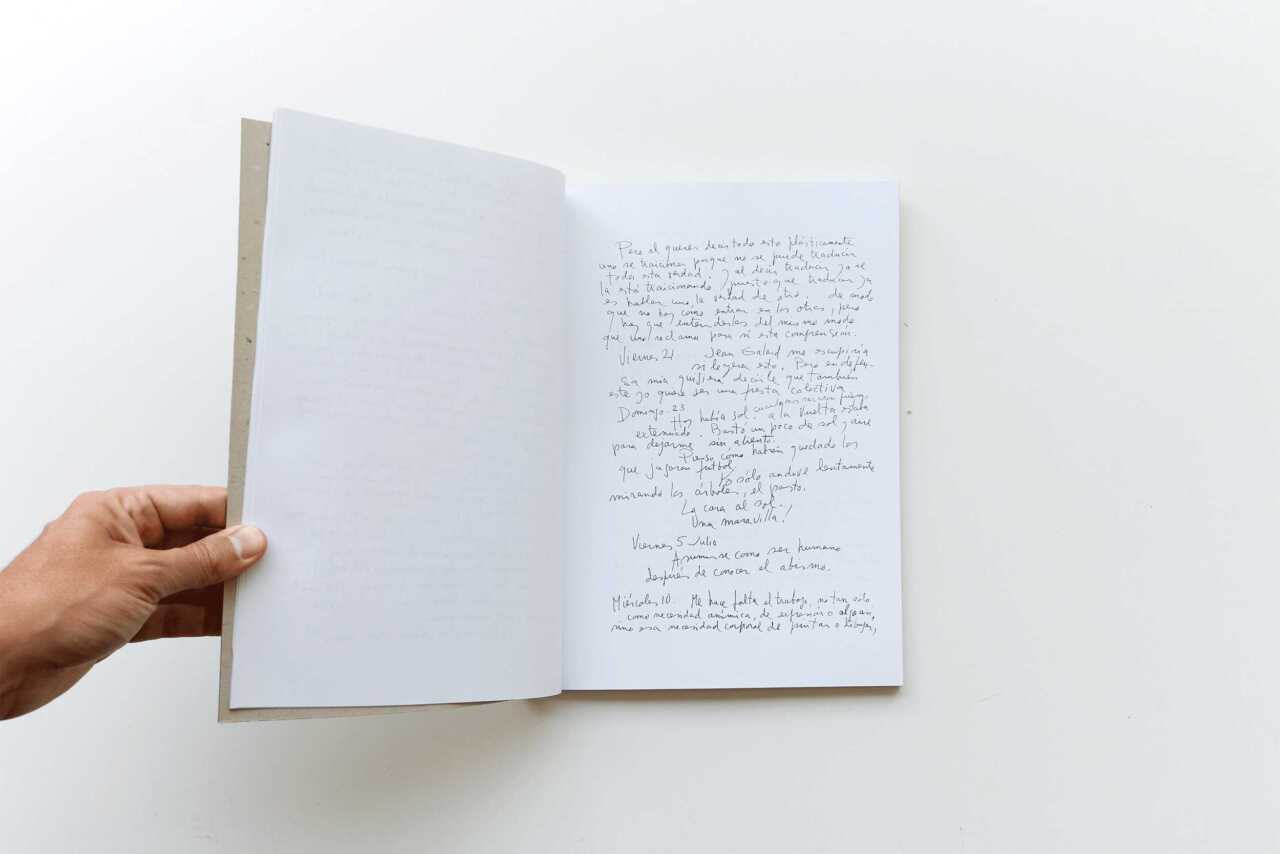 Pero al querer decir todo esto plásticamente
uno se traiciona porque no se puede traducir
toda esta verdad. Y al decir traducir ya se
la está traicionando, puesto que traducir ya
es hablar uno, la verdad de otro. de modo
que no hay como entrar en los otros, pero
hay que entenderlos del mismo modo
que uno reclama para sí esta comprensión.
Viernes 21 Jean Galard me escupiría
si leyera esto. Pero en defen-
sa mía quisiera decirle que también
este yo quiere ser una fiesta colectiva
Domingo. 23
Hoy había sol. a la vuelta estaba
extenuado. Bastó un poco de sol y aire
para dejarme sin aliento.
Pienso cómo habrán quedado los
que jugaron fútbol
Yo sólo anduve lentamente
mirando los árboles, el pasto.
La cara al sol.
Una maravilla!
Viernes 5 Julio
Asumirse como ser humano
después de conocer el abismo.
Miércoles 10. Me hace falta el trabajo, no tan solo
como necesidad anímica, de expresión o
sino esa necesidad corporal de pintar o dibujar,